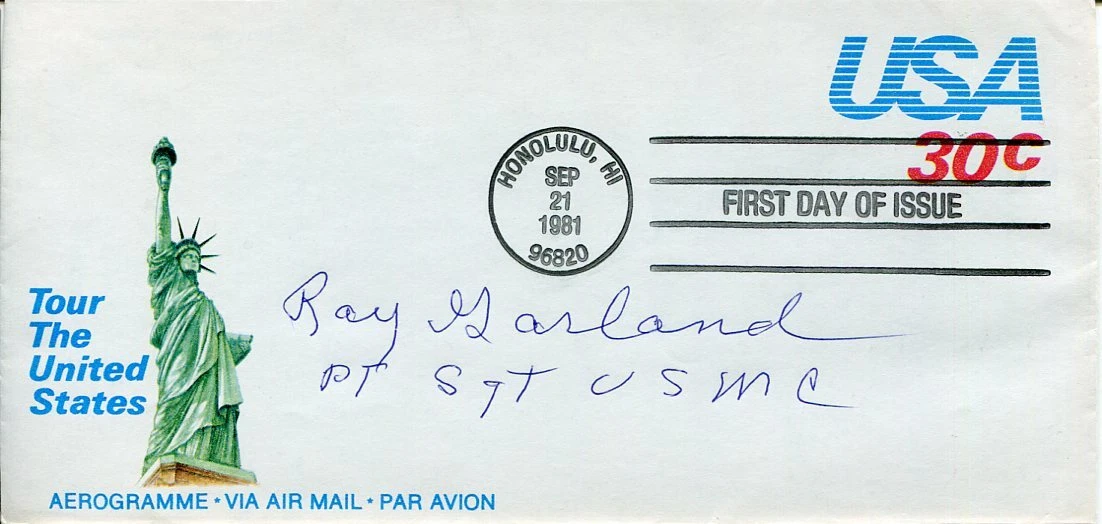 USA
30c
HONOLULU, HI
SEP
21
1981
96820
FIRST DAY OF ISSUE
Ray Garland
PT SgT USMC
Tour
The
United
States
AEROGRAMME * VIA AIR MAIL * PAR AVION